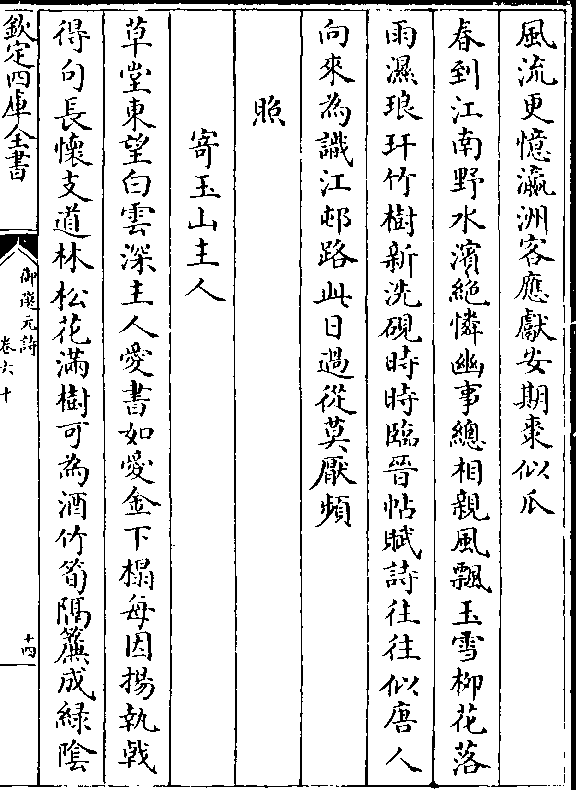 風流更憶瀛洲客應獻安期棗似瓜
春到江南野水濱絶憐幽事總相親風飄玉雪柳花落
雨濕琅玕竹樹新洗硯時時臨晉帖賦詩往往似唐人
向來為識江邨路此日過從莫厭頻
照
寄玉山主人
草堂東望白雲深主人愛書如愛金下榻每因揚執戟
得句長懷支道林松花滿樹可為酒竹筍隔簾成緑陰
欽定四庫全書
御選元詩
卷六十
十四